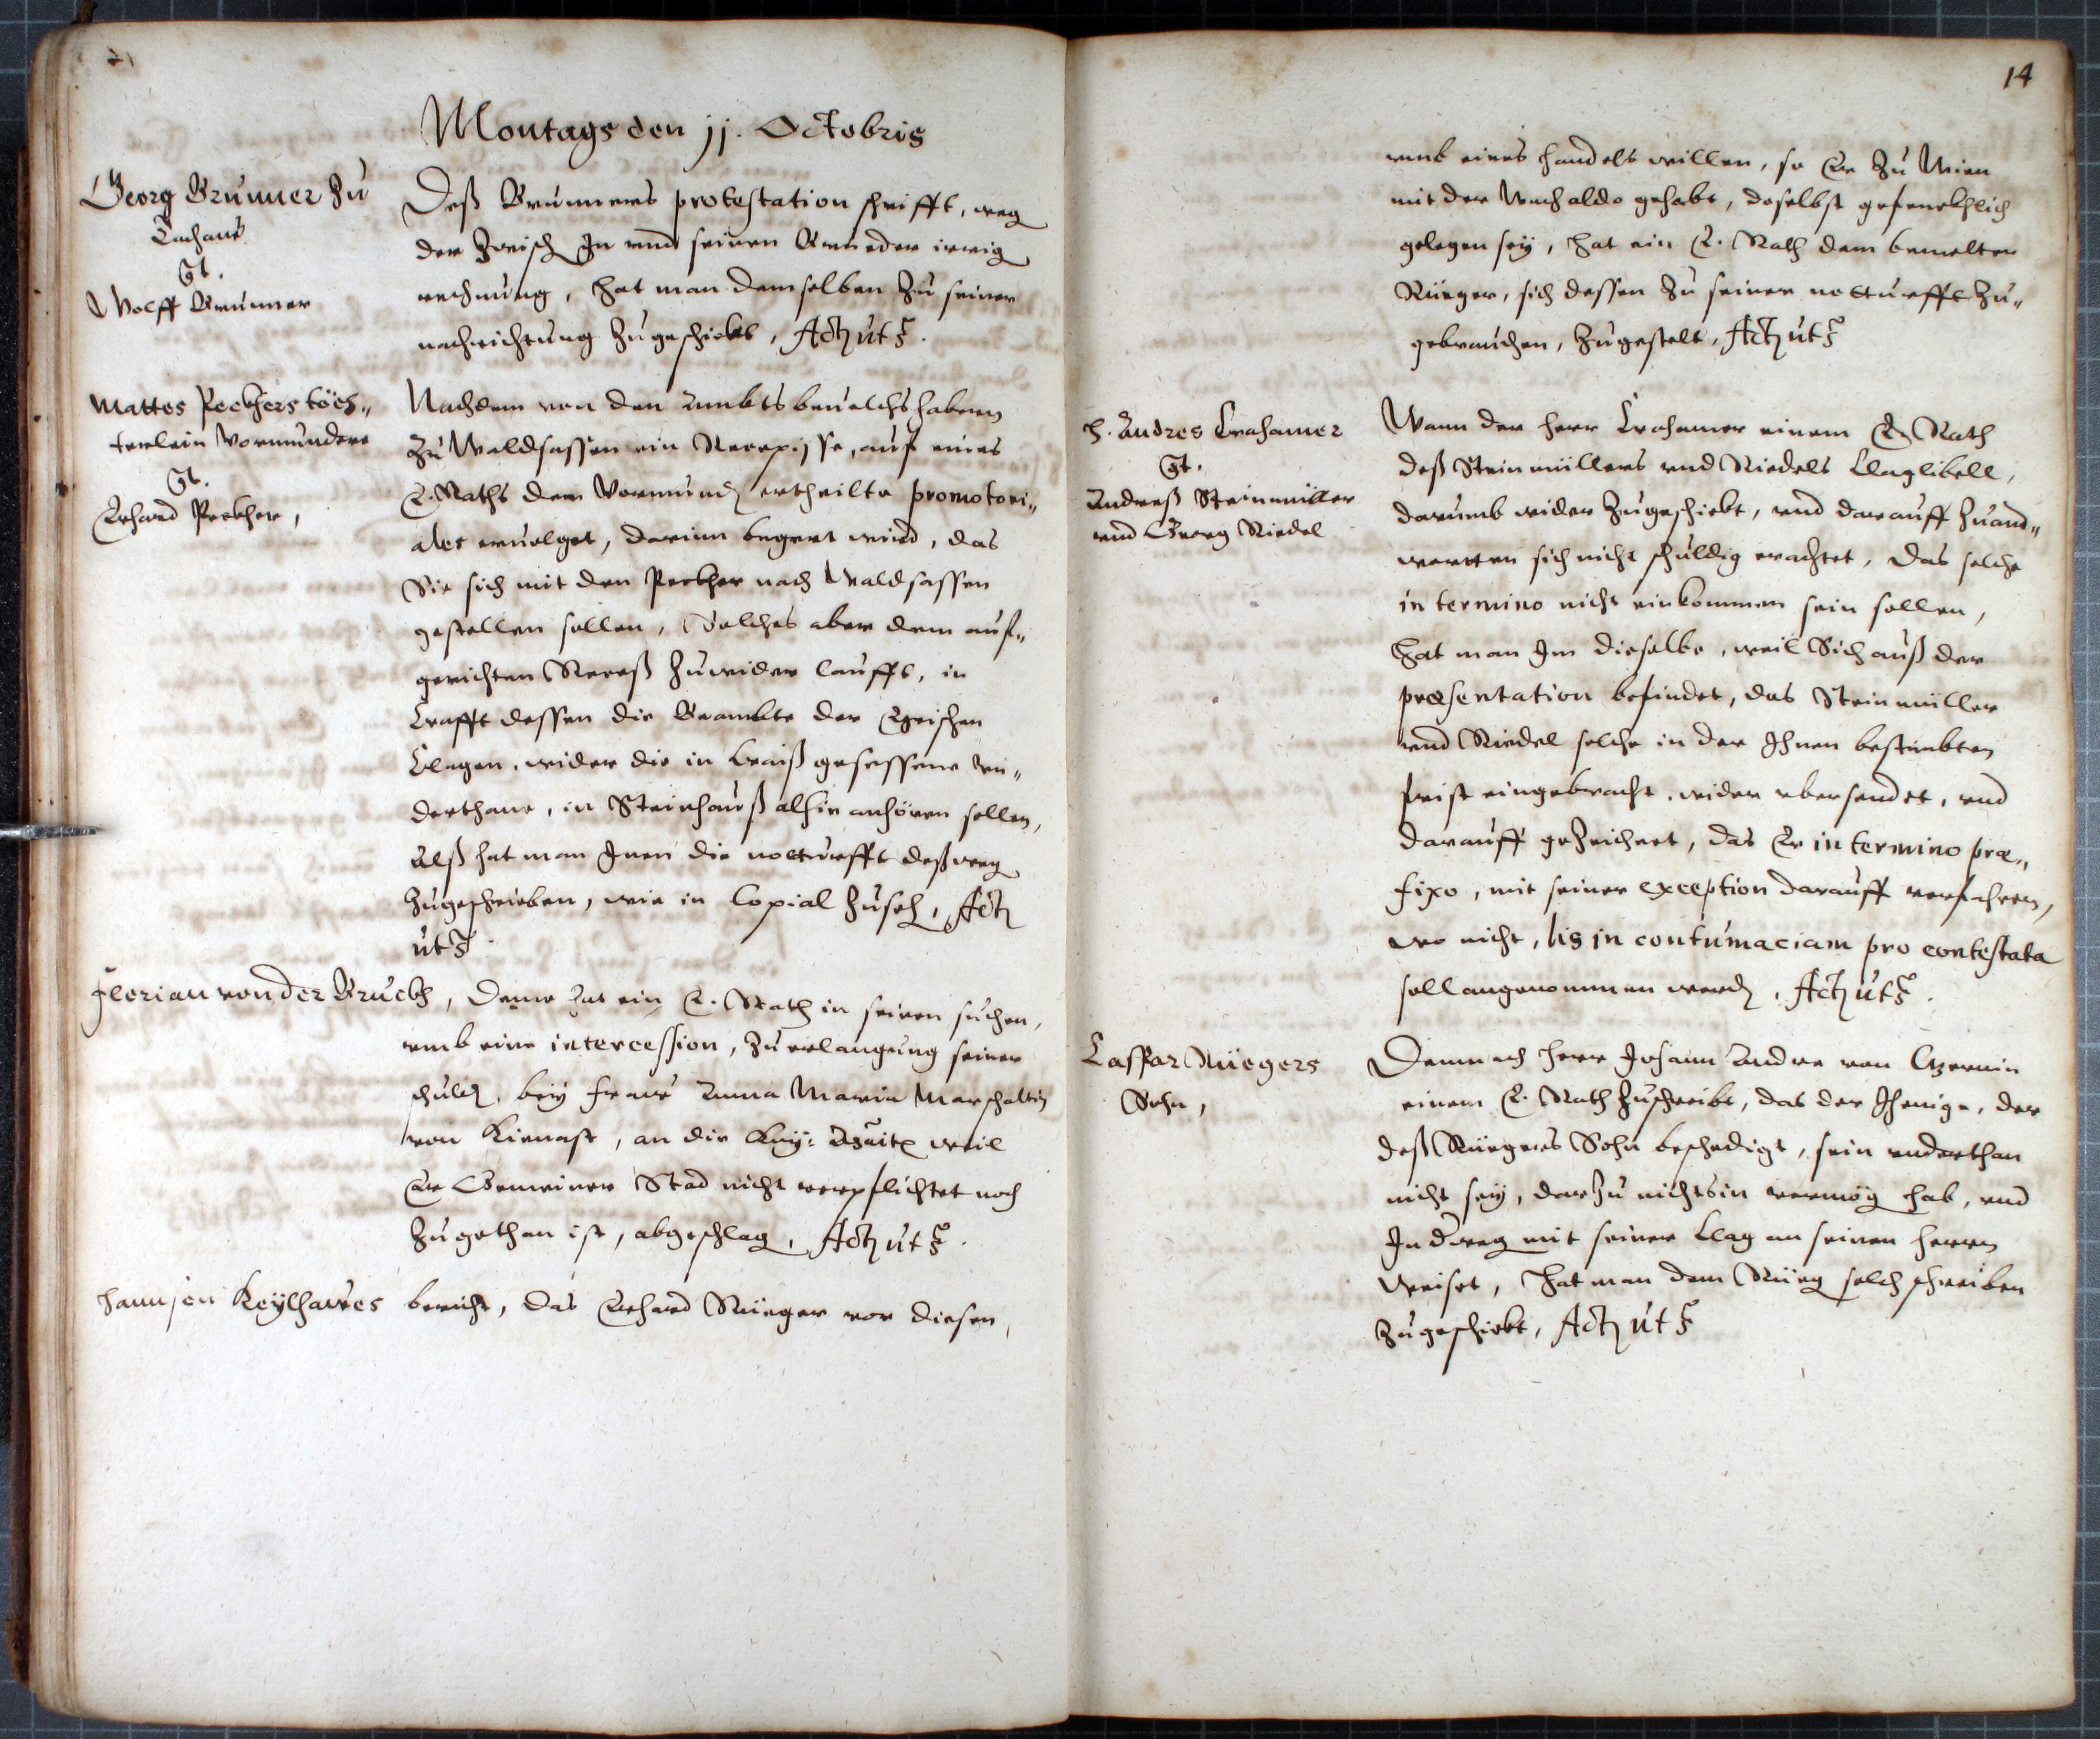 Montags den 11. Octobris
Georg Brunner zu
Tachaw
Ct.
Wolff Brunner
Deß Brunners protestation schrifft, weg
der zwisch Jn vnd seinen Brueder irrig
rechnung, hat man demselben zu seiner
nachrichtung zugeschickt, Act ut s.
Mattes Peckhers töch-
terlein Vormundere
Ct.
Erhard Peckher,
Nachdem von den Ambtsbeuelchshabern
zu Waldsassen ein Recepisse, auf eines
E. Raths dem Vormund ertheilte promotori-
ales eruolget, darinn begert wird, das
Sie sich mit den Peckher nach Waldsassen
gestellen sollen, Solches aber dem auf-
gerichten Receß zuwider laufft, in
Crafft dessen die Beambte der Egrischen
Clagen, wider die in Craiß gesessene Vn-
derthane, in Steinhauß alhie anhören sollen,
Alß hat man Jnen die notturfft deßweg
zugeschrieben, wie in Copial zuseh, Act
ut s.
Florian von der Bruckh, Deme hat ein E. Rath in seinen suchen,
vmb eine intercession, zu erlangung seiner
schuld, bey Fraw Anna Maria Marschaltin
von Kienast, an die weil
Er Gemeiner Stad nicht verpflichtet noch
zugethan ist, abgeschlag, Act ut s.
Hannsen Keylhawes bericht, das Erhard Rüeger vor diesen,
14
vmb eines handels willen, so Er zu Wien
mit der gehabt, doselbst gefenckhlich
gelegen sey, hat ein E. Rath dem bemelten
Rüeger, sich dessen zu seiner notturfft zu-
gebrauchen, zugestelt, Act ut s.
H. Andres Crahamer
Ct.
Andreß Steinmüller
vnd Georg Riedel
Wann der Herr Crahamer einem E. Rath
deß Steinmüllers vnd Riedels Claglibell,
darumb wider zugeschickt, vnd darauff zuand-
wortten sich nicht schuldig erachtet, das solche
in termino nicht einkommen sein sollen,
Hat man Jm dieselbe, weil Sich auß der
præsentation befindet, das Steinmüller
vnd Riedel solche in der Jhnen bestimbten
frist eingebracht, wider vbersendet, vnd
darauff gezeichnet, das Er in termino præ-
fixo, mit seiner exception darauff verfahren,
wo nicht, lis in contumaciam pro contestata
soll angenommen werd, Act ut s.
Casspar Rüegers
Sohn,
Demnach Herr Johann Andre von Czernin
einem E. Rath zuschreibt, das der Jhenige, der
deß Rüegers Sohn beschedigt, sein vnderthan
nicht sey, darzu nichts in vermög hab, vnd
Jn dreg mit seiner Clag an seinen Herrn
weiset, Hat man dem Rüeg solch schreiben
zugeschickt, Act ut s.